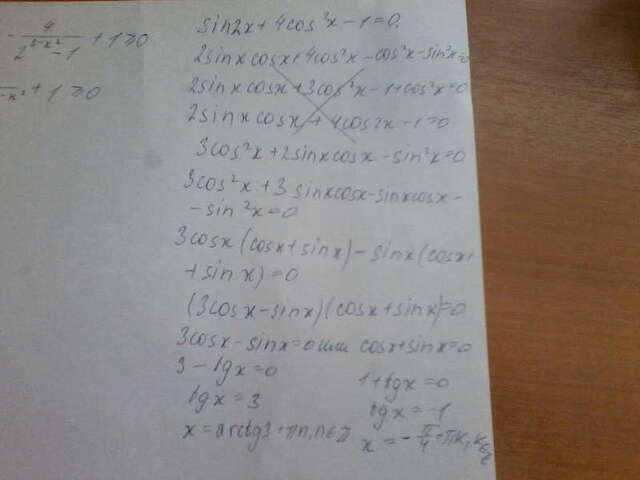 - 4/(2^(3-x²) - 1) + 1 ≥ 0
-x² + 1 ≥ 0
sin2x + 4cos²x - 1 = 0.
2sinx cosx + 4cos²x - cos²x - sin²x = 0
2sinx cosx + 3cos²x - 1 + cos²x = 0
2sinx cosx + 4cos2x - 1 = 0
3cos²x + 2sinxcosx - sin²x = 0
3cos²x + 3sinxcosx - sinxcosx -
- sin²x = 0
3cosx(cosx + sinx) - sinx(cosx +
+ sinx) = 0
(3cosx - sinx)(cosx + sinx) = 0
3cosx - sinx = 0 или cosx + sinx = 0
3 - tgx = 0
tgx = 3
x = arctg3 + πn, n∈Z
1 + tgx = 0
tgx = -1
x = -π/4 + πk, k∈Z